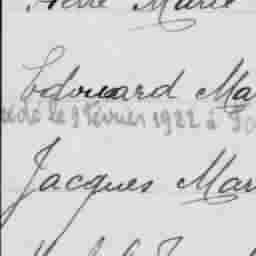 Marie
Edouard Ma
cédé le 9 février 1922 à
Jacques Mar